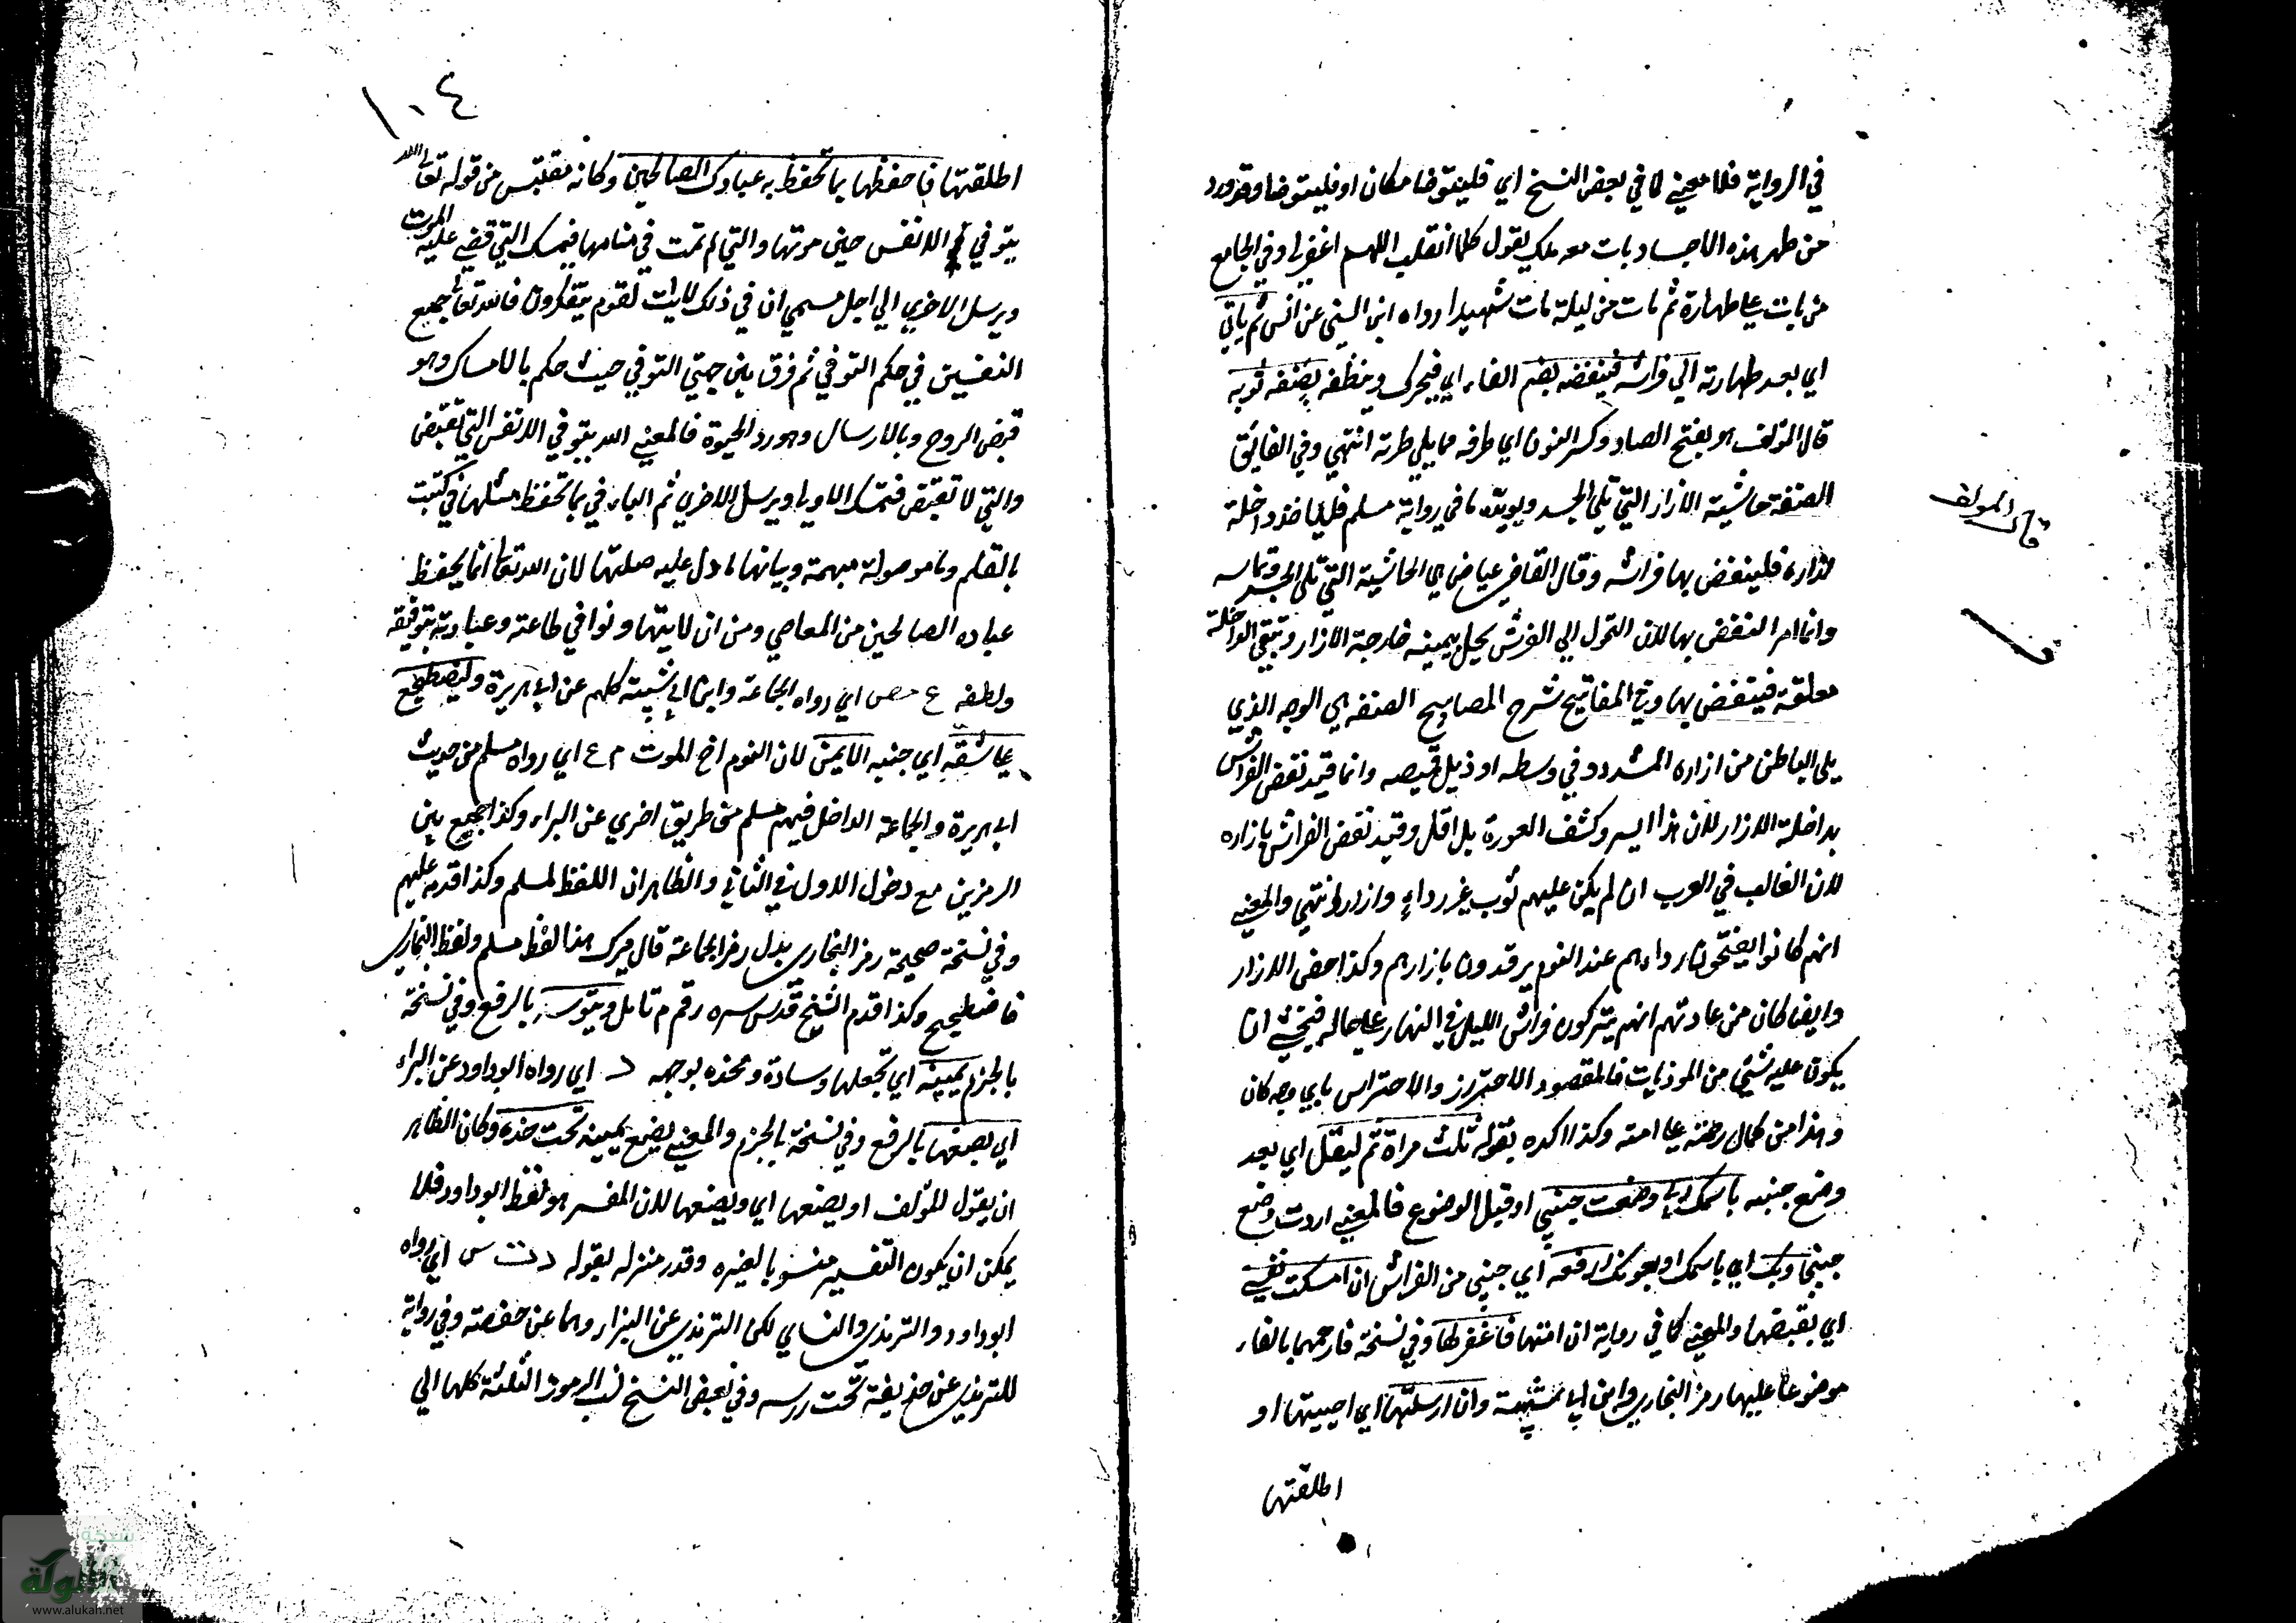 في الرواية فلا معنى لما في بعض النسخ اي فليتوضا مكان او فليتوضا وقد ورد
من طهر هذه الاجساد بات معه ملك يقول كلما انقلب اللهم اغفر له وفي الجامع
من بات على طهارة ثم مات من ليلة مات شهيدا رواه ابن السني عن انس ثم ياتي
اي بعد طهارته الي فراشه فينفضه بضم الفاء اي فيحرك وينظفه بصنفه ثوبه
قال المؤلف هو بفتح الصاد وكسر النون اي طرفه مما يلي طرته انتهي وفي الفايق
الصنفة حاشية الازار التي تلي الجسد ويويده ما في رواية مسلم فلياخذ داخلة
ازاره فلينفض بها فراشه وقال القاضي عياض هي الحاشية التي تلي الجسد وتماسه
وانما امر النفض بها لان التحول الي الفرش يحل بيمينه خارجة الازار وتبقي الداخلة
معلقة فينفض بها وفي المفاتيح شرح المصابيح الصنفه هي الوجه الذي
يلي الباطن من ازاره المشدود في وسطه او ذيل قميصه وانما قيد نفض الفراش
بداخلة الازار لان هذا ايسر وكشف العورة بل اقل وقيد نفض الفراش بازاره
لان الغالب في العرب ان لم يكن عليهم ثوب غير رداء وازار انتهي والمعني
انهم كانوا رداءهم عند النوم يرقدون بازارهم وكذا الازار
وايضا كان من عادتهم انهم يتركون فراش الليل في النهار على حاله فيخشي ان
يكون عليه شئ من الموذيات فالمقصود الاحتراز والاحتراس باي وجه كان
وهذا من كمال رحمته على امته وكذا اكده بقوله ثلث مراة ثم ليقل اي بعد
وضع جنبه باسمك ربي وضعت جنبي او قبل الوضوع فالمعني اردت وضع
جنبي وبك اي باسمك او بعونك ارفعه اي جنبي من الفراش ان امسكت نفسي
اي بقبضها والمعني كما في رواية ان امتها فاغفر لها وفي نسخة فارحمها بالفاء
موضوعا عليها رمز البخاري وابن ابي شيبة وان ارسلتها اي احييتها او
اطلقتها
قال المؤلف
١٠٤
اطلقتها فاحفظها بما تحفظ به عبادك الصالحين وكانه مقتبس من قوله تعالى الله
يتوفي الانفس حين موتها والتي لم تمت في منامها فيمسك التي قضي عليها الموت
ويرسل الاخري الي اجل مسمي ان في ذلك لايات لقوم يتفكرون فانه تعالى جمع
النفسين في حكم التوفي ثم فرق بين جهتي التوفي حيث حكم بالامساك وهو
قبض الروح وبالارسال وهو رد الحيوة فالمعني الله يتوفي الانفس التي تقبض
والتي لا تقبض فيمسك الاولى ويرسل الاخري ثم الباء في بما تحفظ مثلها في كتبت
بالقلم وما موصولة مبهمة وبيانها ما دل عليه صلتها لان الله تعالى انما يحفظ
عباده الصالحين من المعاصي ومن ان لا يتهاونوا في طاعته وعبادته بتوفيقه
ولطفه ع مص اي رواه الجماعة وابن ابي شيبة كلهم عن ابي هريرة وليضطجع
على شقه اي جنبه الايمن لان النوم اخ الموت م ع اي رواه مسلم من حديث
ابي هريرة والجماعة الداخل فيهم مسلم من طريق اخري عن البراء وكذا جمع بين
الرمزين مع دخول الاول في الثاني والظاهر ان اللفظ لمسلم وكذا قدمه عليهم
وفي نسخة صحيحة رمز البخاري بدل رمز الجماعة قال ميرك هذا لفظ مسلم ولفظ البخاري
فاضطجع وكذا قدم الشيخ قدس سره رقم م تامل ويتوسد بالرفع وفي نسخة
بالجزم يمينه اي تجعلها وسادة ومخذه بوجهه د اي رواه ابو داود عن البراء
اي يضعها بالرفع وفي نسخة بالجزم والمعني يضع يمينه تحت خده وكان الظاهر
ان يقول المؤلف او يضعها اي ويضعها لان المفسر هو لفظ ابو داود فلا
يمكن ان يكون التفسير منسوبا لغيره وقد رمز له بقوله د ت س اي رواه
ابو داود والترمذي والنساي لكن الترمذي عن البزار وهما عن حفصة وفي رواية
للترمذي عن حذيفة تحت راسه وفي بعض النسخ الرموز الثلثة كلها الي
شبكة
الألوكة
www.alukah.net